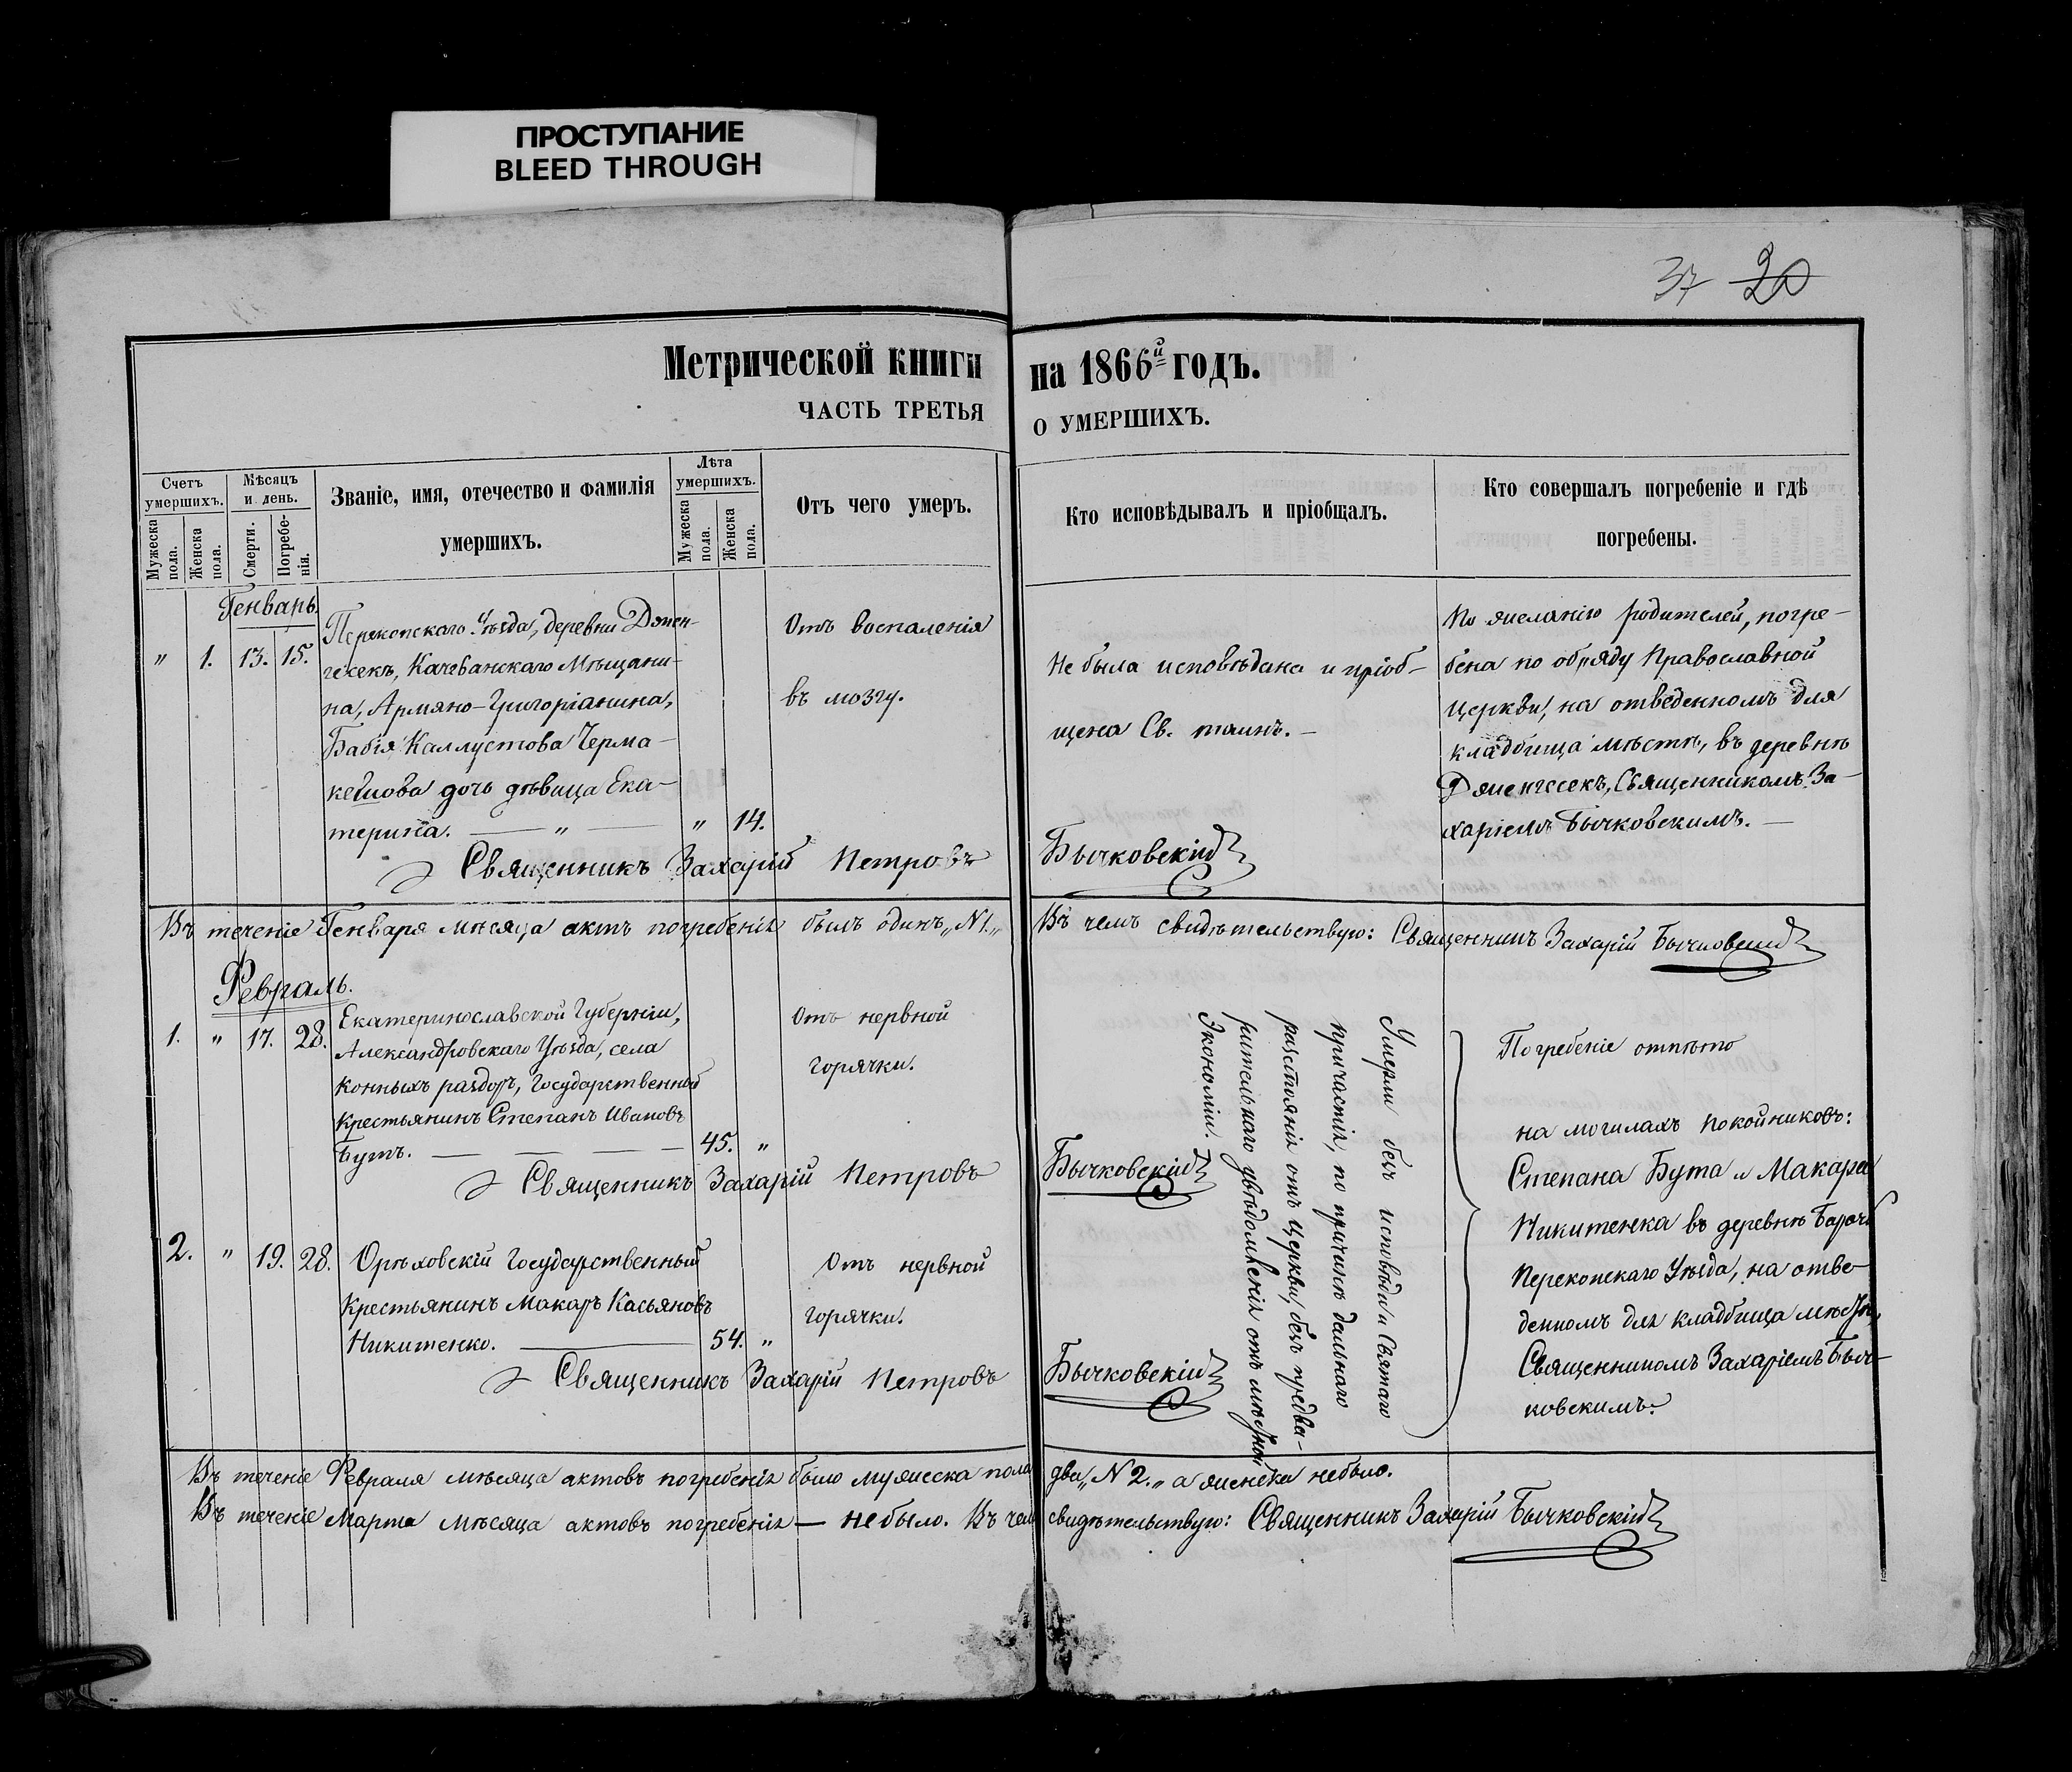 ПРОСТУПАНИЕ
BLEED THROUGH
37 20
Метрической книги на 1866й годъ.
ЧАСТЬ ТРЕТЬЯ О УМЕРШИХЪ.
Счетъ умершихъ.
Мужеска пола.
Женска пола.
Мѣсяцъ и день.
Смерти.
Погребенія.
Званіе, имя, отечество и фамилія умершихъ.
Лѣта умершихъ.
Мужеска пола.
Женска пола.
Отъ чего умеръ.
Кто исповѣдывалъ и пріобщалъ.
Кто совершалъ погребеніе и гдѣ
погребены.
Генварь.
" 1. 13. 15.
Перекопскаго Уѣзда, деревни Джен-
гесекъ, Качебанскаго Мѣщани-
на, Армяно-Григоріанина,
Бабія Каллустова Черма-
кешова дочь дѣвица Ека-
терина. — " — " 14.
Отъ воспаленія
въ мозгу.
Не была исповѣдана и пріоб-
щена Св. таинъ. —
По желанію родителей, погре-
бена по обряду Православной
Церкви, на отведенномъ для
кладбища мѣстѣ, въ деревнѣ
Дженгесекъ, Священникомъ За-
харіемъ Бычковскимъ. —
Священникъ Захарій Петровъ Бычковскій
Въ теченіе Генваря мѣсяца актъ погребенія былъ одинъ „N 1.„ Въ чемъ свидѣтельствую: Священникъ Захарій Бычковскій
Февраль.
1. " 17. 28.
Екатеринославской Губерніи,
Александровскаго Уѣзда, села
Конныхъ раздоръ, Государственный
Крестьянинъ Степанъ Ивановъ
Бутъ. — — — 45. "
Отъ нервной
горячки.
Священникъ Захарій Петровъ Бычковскій
2. " 19. 28.
Орѣховскій Государственный
Крестьянинъ Макаръ Касьяновъ
Никитенко. — 54. "
Отъ нервной
горячки.
Священникъ Захарій Петровъ Бычковскій
Умерли безъ исповѣди и Святаго
причастія, по причинѣ дальнаго
разстоянія отъ церкви, безъ предва-
рительнаго увѣдомленія отъ мѣстной
Экономіи.
Погребеніе отпѣто
на могилахъ покойниковъ:
Степана Бута и Макара
Никитенка въ деревнѣ
Перекопскаго Уѣзда, на отве-
денномъ для кладбища мѣстѣ,
Священникомъ Захаріемъ Быч-
ковскимъ.
Въ теченіе Февраля мѣсяца актовъ погребенія было мужеска пола два „N 2.„ а женска небыло.
Въ теченіе Марта мѣсяца актовъ погребенія — небыло. Въ чемъ свидѣтельствую: Священникъ Захарій Бычковскій